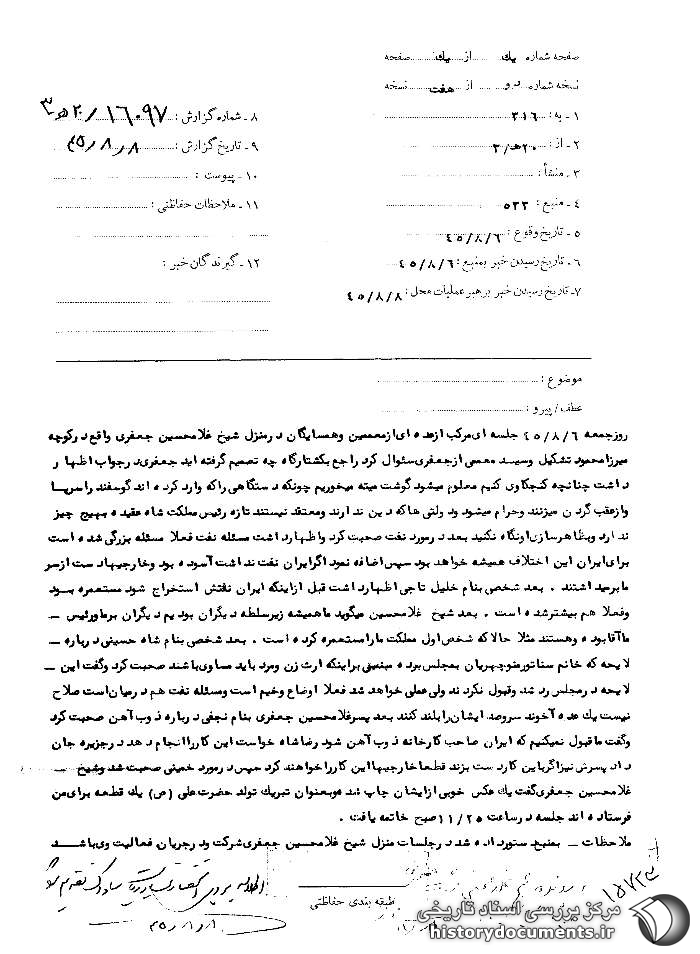 صفحه شماره یک از یک صفحه
نسخه شماره دو از هفت نسخه
۱- به: ۳۱۶
۲- از: ۲۰ ه‍/ ۳
۳- منشأ:
۴- منبع: ۵۳۳
۵- تاریخ وقوع: ۴۵/۸/۶
۶- تاریخ رسیدن خبر بمنبع: ۴۵/۸/۶
۷- تاریخ رسیدن خبر برهبر عملیات محل: ۴۵/۸/۸
۸- شماره گزارش: ۱۶۰۹۷/ ۲۰ ه‍ ۳
۹- تاریخ گزارش: ۴۵/۸/۸
۱۰- پیوست:
۱۱- ملاحظات حفاظتی:
۱۲- گیرندگان خبر:
موضوع:
عطف/پیرو:
روز جمعه ۴۵/۸/۶ جلسه ای مرکب از عده ای از معممین وهمسایگان درمنزل شیخ غلامحسین جعفری واقع درکوچه
میرزامحمود تشکیل وسید معممی ازجعفری سئوال کرد راجع بکشتارگاه چه تصمیم گرفته اید جعفری درجواب اظهار
داشت چنانچه کنجکاوی کنیم معلوم میشود گوشت میته میخوریم چونکه دستگاهی راکه وارد کرده اند گوسفند راسرپا
وازعقب گردن میزنند وحرام میشود ودولتی هاکه دین ندارند ومعتقد نیستند تازه رئیس مملکت شاه عقیده بهیچ چیز
ندارد وبظاهرسازی اونگاه نکنید بعد درمورد نفت صحبت کرد واظهارداشت مسئله نفت فعلا مسئله بزرگی شده است
برای ایران این اختلاف همیشه خواهد بود سپس اضافه نمود اگرایران نفت نداشت آسوده بود وخارجیها دست ازسر
مابرمیداشتند . بعد شخصی بنام خلیل تاجی اظهارداشت قبل ازاینکه ایران نفتش استخراج شود مستعمره بود
وفعلا هم بیشترشده است . بعد شیخ غلامحسین میگوید ماهمیشه زیرسلطه دیگران بودیم دیگران برما رئیس –
ماآقابوده وهستند مثلا حالاکه شخص اول مملکت مارامستعمره کرده است . بعد شخصی بنام شاه حسینی درباره –
لایحه که خانم سناتورمنوچهریان بمجلس برده مبنی براینکه ارث زن ومرد باید مساوی باشند صحبت کرد وگفت این –
لایحه درمجلس رد شد وقبول نکردند ولی عملی خواهد شد فعلا اوضاع وخیم است ومسئله نفت هم درمیان است صلاح
نیست یک عده آخوند سروصد ایشان رابلند کنند بعد پسرغلامحسین جعفری بنام نجفی درباره ذوب آهن صحبت کرد
وگفت ماقبول نمیکنیم که ایران صاحب کارخانه ذوب آهن شود رضاشاه خواست این کاررا انجام دهد درجزیره جان
داد پسرش نیزاگرباین کار دست بزند قطعاخارجیها این کارراخواهند کرد سپس درمورد خمینی صحبت شد وشیخ –
غلامحسین جعفری گفت یک عکس خوبی ازایشان چاپ شد وبعنوان تبریک تولد حضرت علی (ص) یک قطعه برای من
فرستاده اند جلسه درساعت ۱۱/۲۵ صبح خاتمه یافت .
ملاحظات – بمنبع دستورداده شد درجلسات منزل شیخ غلامحسین جعفری شرکت ودرجریان فعالیت وی باشد
۴۵/۸/۸
طبقه بندی حفاظتی
۱۵۷۲۳
مرکز بررسی اسناد تاریخی
historydocuments.ir